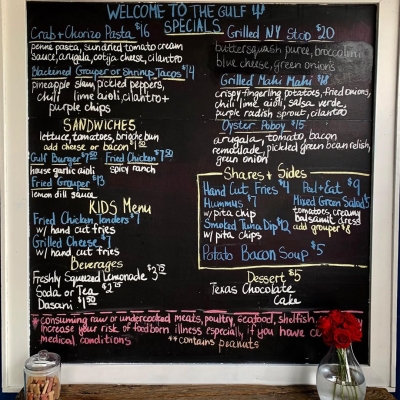 WELCOME TO THE GULF
SPECIALS
Crab + Chorizo Pasta $16
penne pasta, sundried tomato cream
sauce, arugula, cotija cheese, cilantro
Blackened Grouper or Shrimp Tacos $14
pineapple slaw, pickled peppers,
chili lime aioli, cilantro +
purple chips
SANDWICHES
lettuce, tomatoes, brioche bun
add cheese or bacon $1
Gulf Burger $7.50 Fried Chicken $7.50
house garlic aioli spicy ranch
Fried Grouper $13
lemon dill sauce
KIDS Menu
Fried Chicken Tenders $7
w/ hand cut fries
Grilled Cheese $7
w/ hand cut fries
Beverages
Freshly Squeezed Lemonade $2.75
Soda or Tea $2.75
Dasani $1.50
Grilled NY Strip $20
butter squash puree, broccolini,
blue cheese, green onions
Grilled Mahi Mahi $18
crispy fingerling potatoes, fried onions,
chili lime aioli, salsa verde,
purple radish sprout, cilantro
Oyster Poboy $15
arugala, tomato, bacon
remoulade, pickled green bean relish,
green onion
Shares + Sides
Hand Cut Fries $4
Hummus $7
w/ pita chip
Smoked Tuna Dip $12
w/ pita chips
Peel + Eat $9
Mixed Green Salad $5
tomatoes, creamy
balsamic dress
add grouper $8
Potato Bacon Soup $5
Dessert $5
Texas Chocolate
Cake
*consuming raw or undercooked meats, poultry, seafood, shellfish
increase your risk of foodborn illness especially if you have
medical conditions **contains peanuts